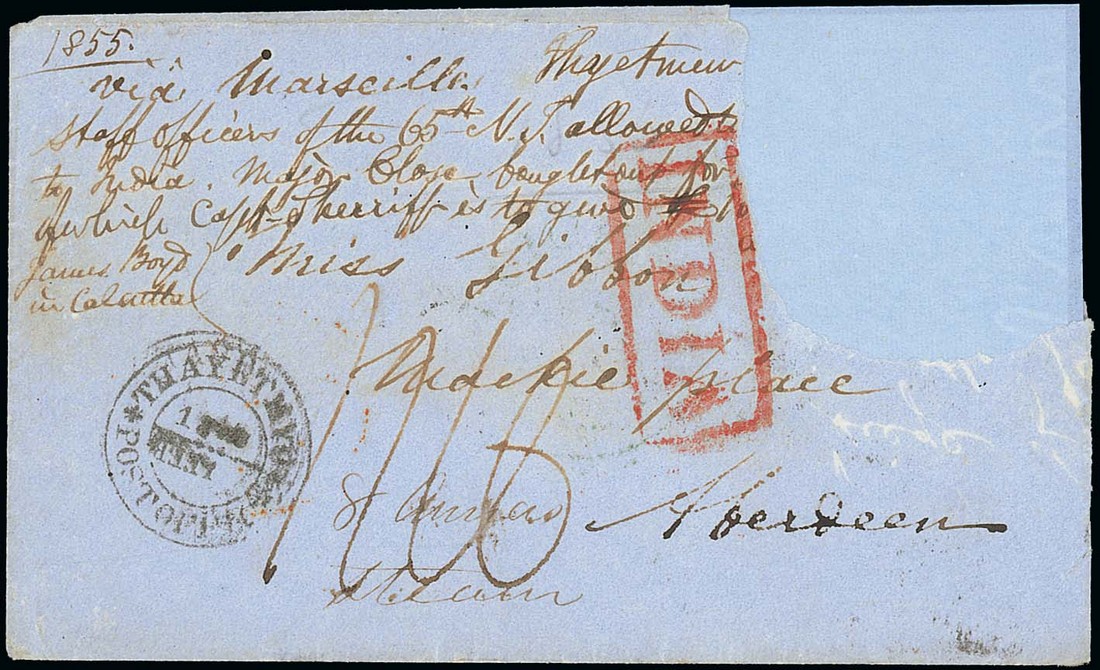 1855.
via Marseilles Thyetmew
Staff officers of the 65th N. I. allowed to
to India. Major Close bought out for
of which Capt. Sherriff is to give
James Boyd
in Calcutta
Miss Gibbon
Mackie place
Aberdeen
Steam
INDIA
THAYETMYO
POST OFFICE
1
FEB